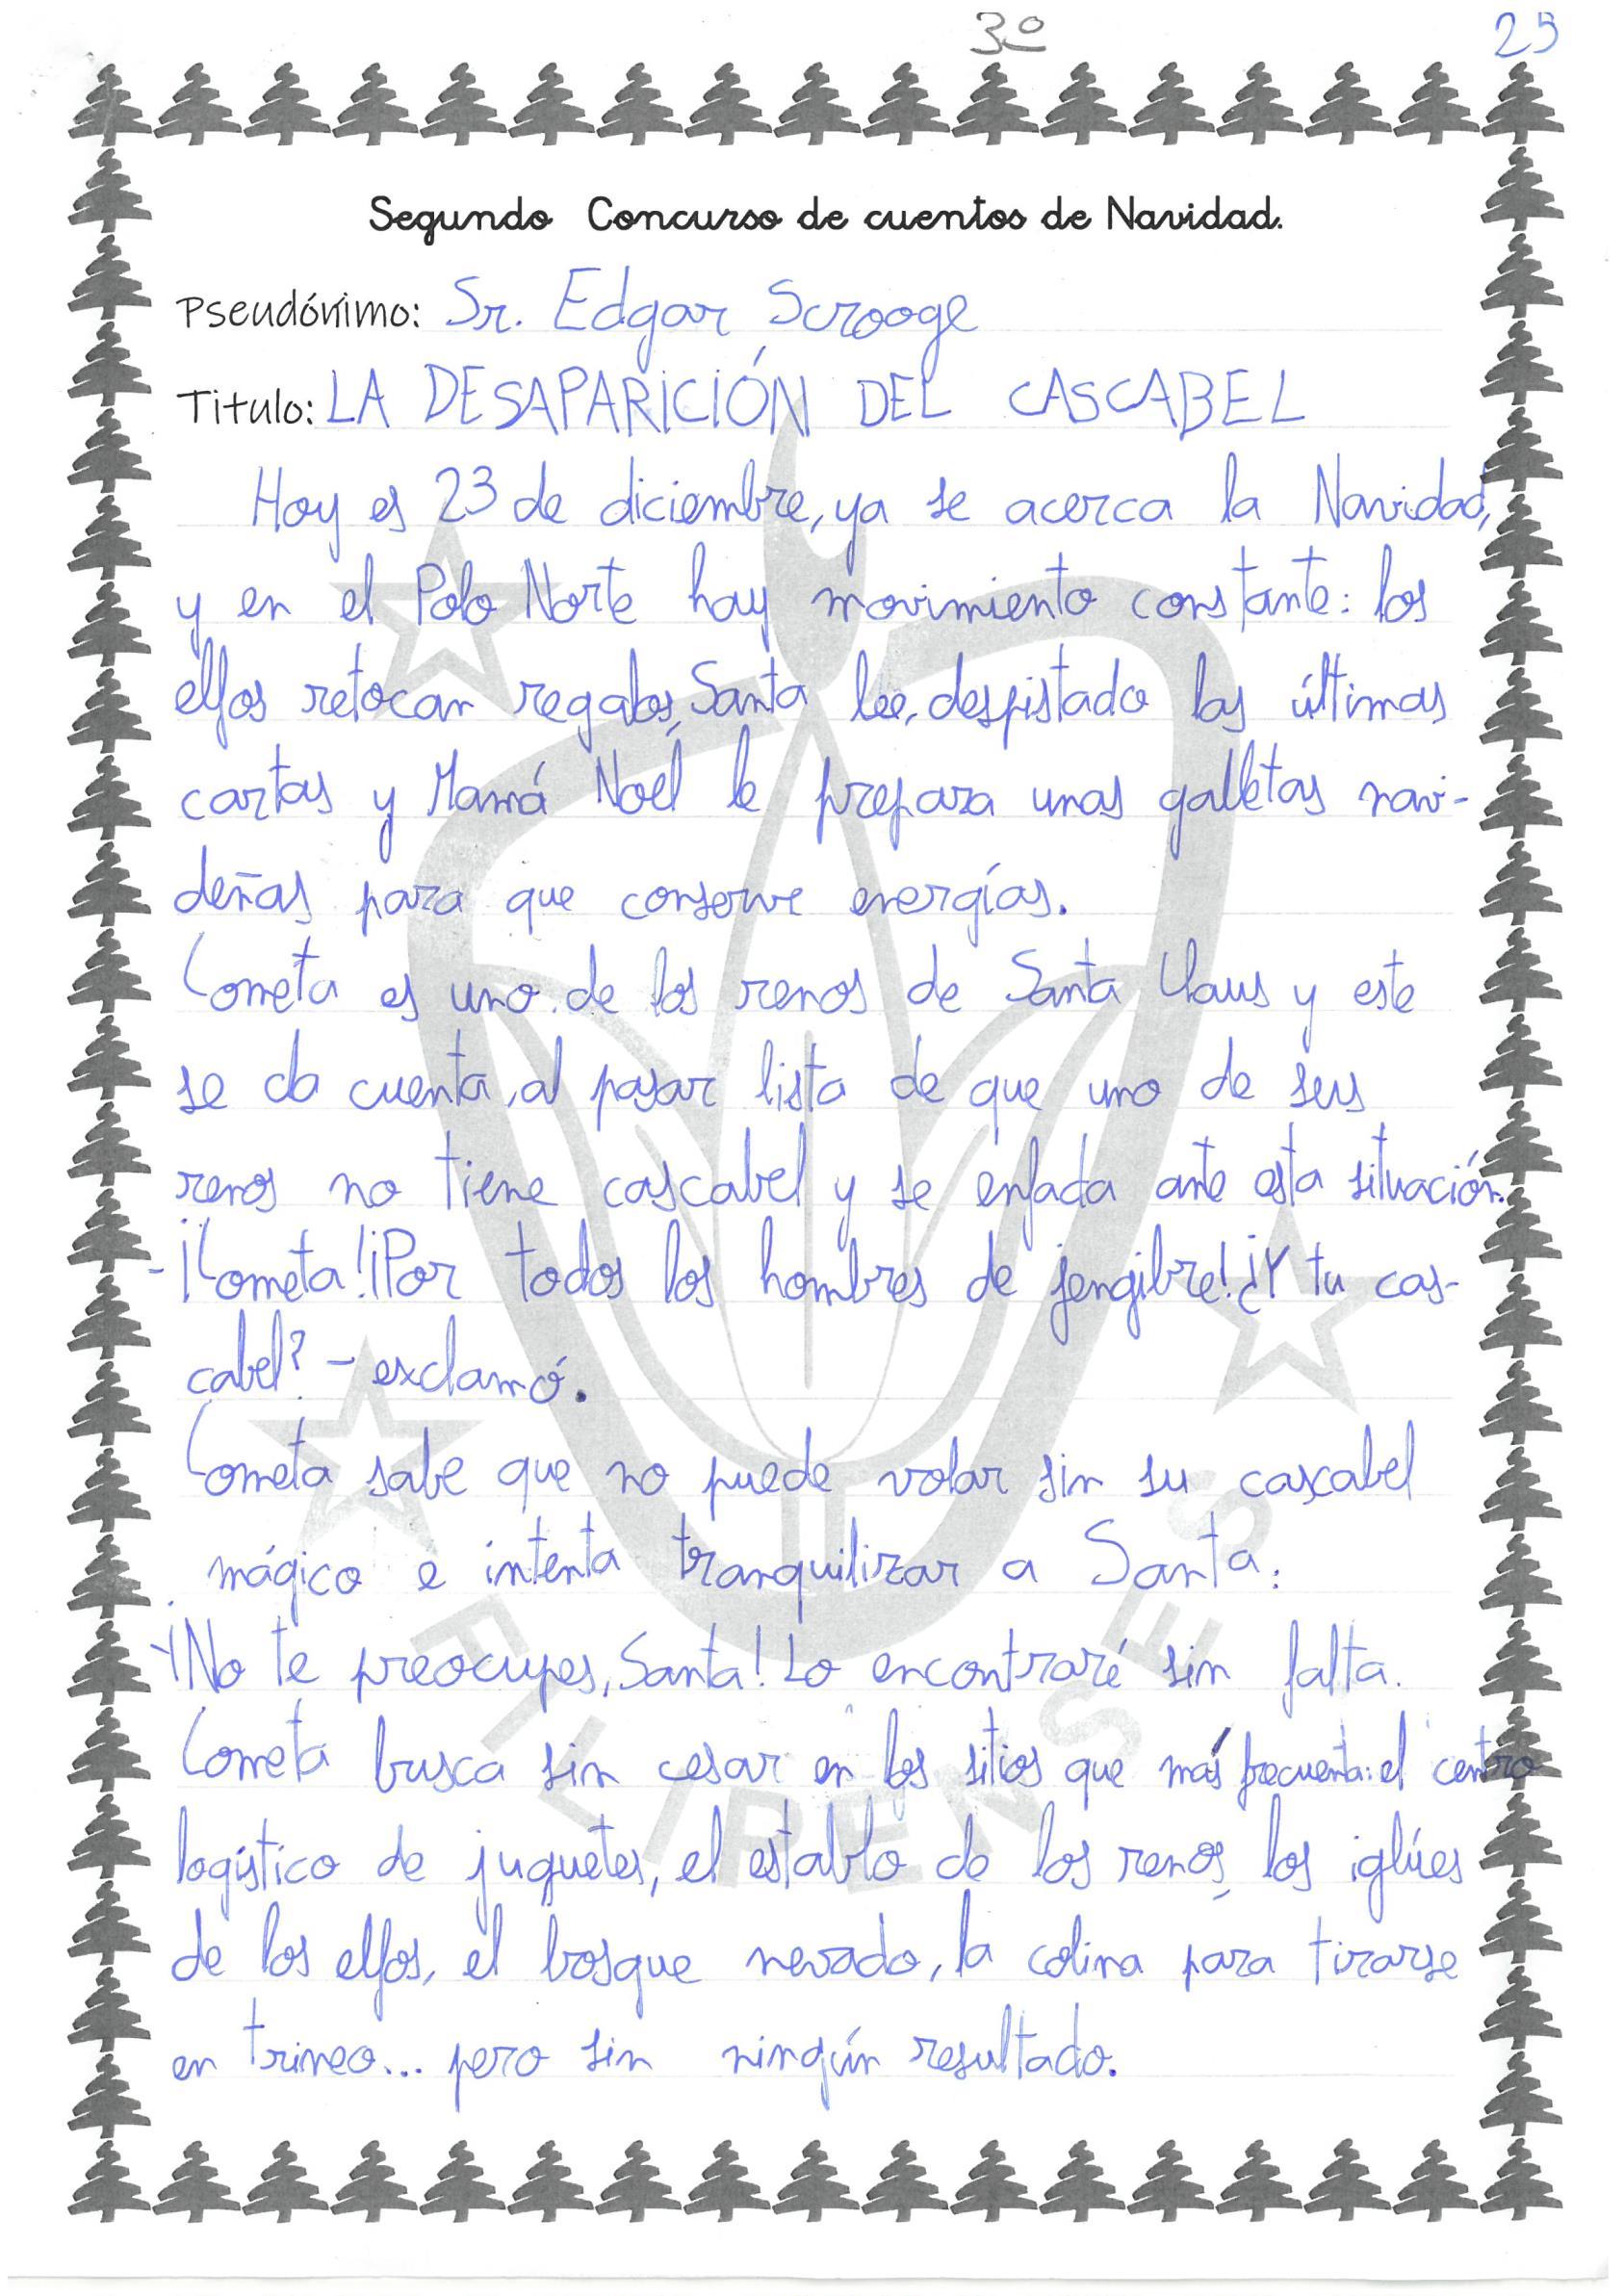 3º 25
Segundo Concurso de cuentos de Navidad.
Pseudónimo: Sr. Edgar Scrooge
Titulo: LA DESAPARICIÓN DEL CASCABEL
Hoy es 23 de diciembre, ya se acerca la Navidad,
y en el Polo Norte hay movimiento constante: los
elfos retocan regalos, Santa lee, despistado las últimas
cartas y Mamá Noél le prepara unas galletas navi-
deñas para que conserve energías.
Cometa es uno de los renos de Santa Claus y este
se da cuenta, al pasar lista de que uno de sus
renos no tiene cascabel y se enfada ante esta situación.
- ¡Cometa! ¡Por todos los hombres de jengibre! ¿Y tu cas-
cabel? - exclamó.
Cometa sabe que no puede volar sin su cascabel
mágico e intenta tranquilizar a Santa:
-¡No te preocupes, Santa! Lo encontraré sin falta.
Cometa busca sin cesar en los sitios que más frecuenta: el centro
logístico de juguetes, el establo de los renos, los iglúes
de los elfos, el bosque nevado, la colina para tirarse
en trineo... pero sin ningún resultado.
FILIPENSES